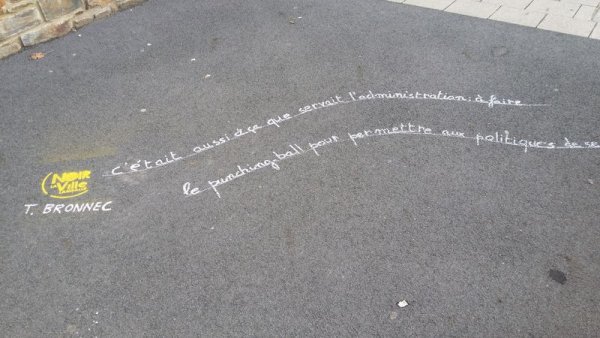 NOIR
sur la
Ville
T. BRONNEC
c'était aussi à ça que servait l'administration : à faire
le punching-ball pour permettre aux politiques de se